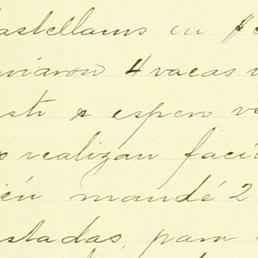 astellams en
viaron 4 vacas
espero
realizan faci
ién mandé 2
stadas, para